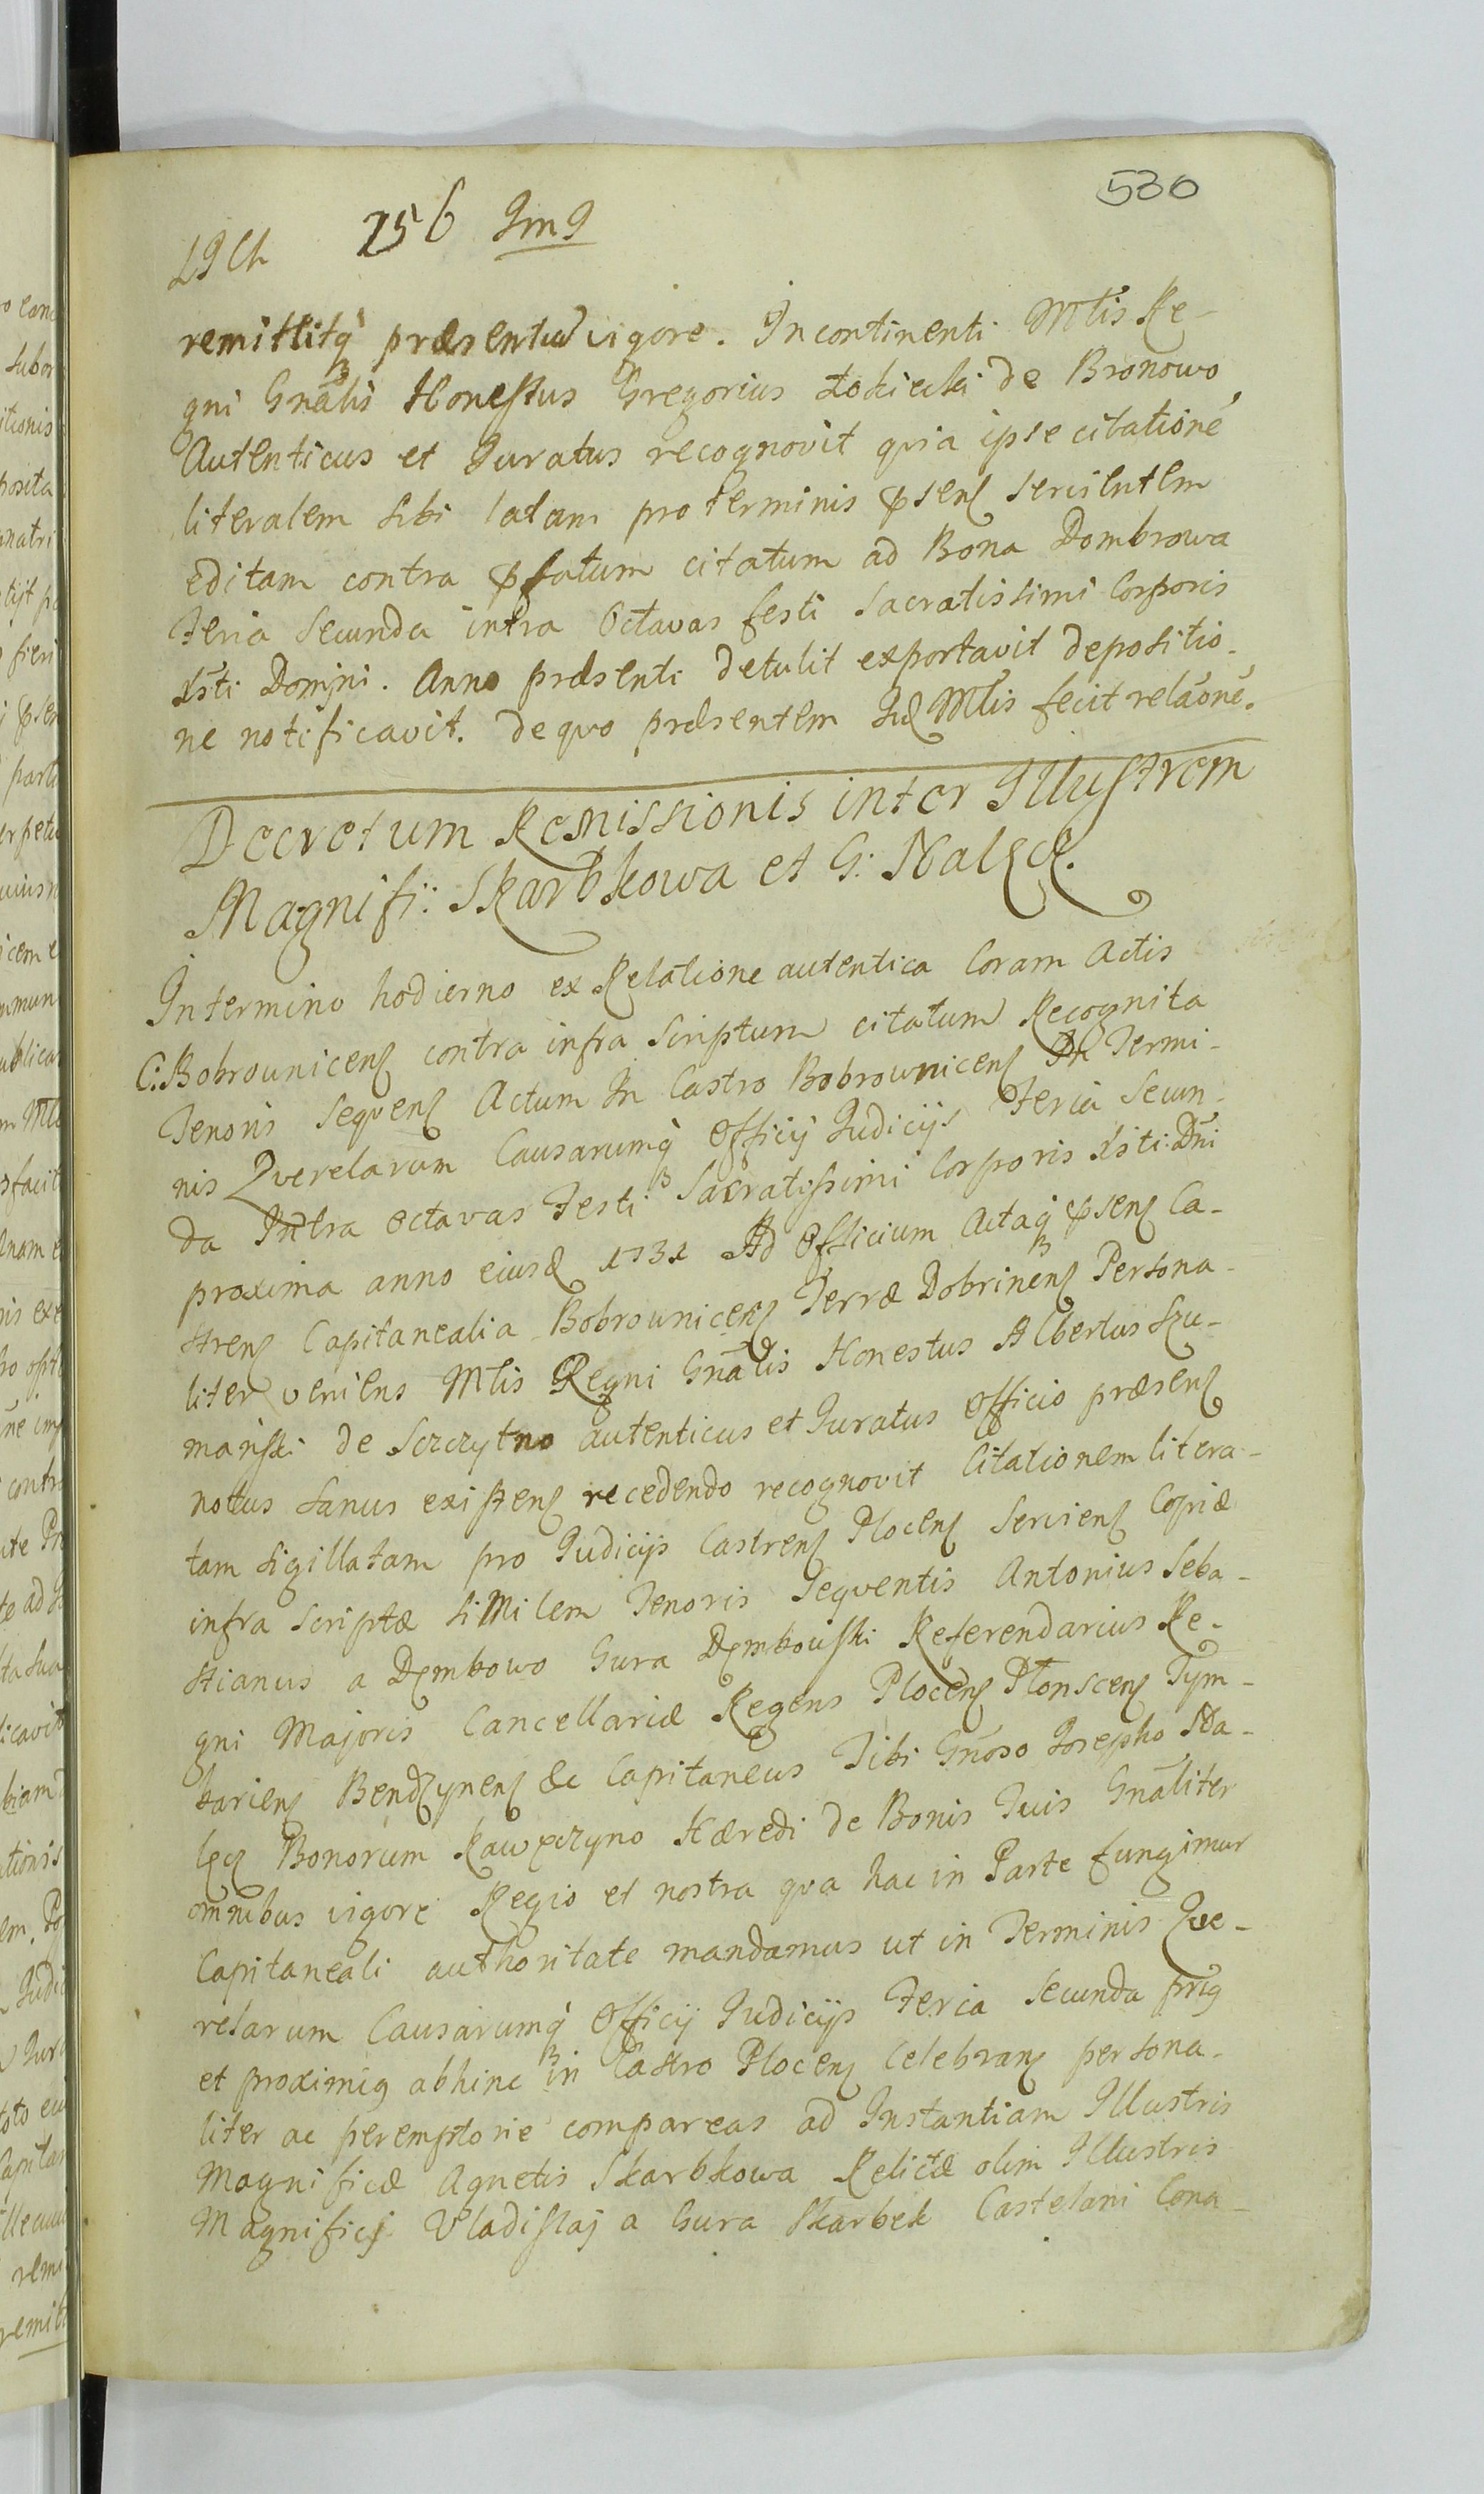 530
156
remittitq́ præsentiũ vigore. Incontinenti Mtlis Re-
gni Gnãlis Honestus Gregorius Łokiecki de Bronowo
Autenticus et Juratus recognovit quia ipse citationẽ
literalem sibi latam pro terminis psens servientem
editam contra pfatum citatum ad Bona Dombrowa
Feria Secunda intra Octavas festi Sacratissimi Corporis
Xsti Domini. Anno præsenti detulit exportavit depositio-
ne notificavit. De quo præsentem sã Mtlis fecit relãonẽ.
Decretum Remissionis inter Illustrem
Magnifi: Skarbkowa et G: Nalęcz.
In termino hodierno ex Relatione autentica Coram Actis
C: Bobrounicens contra infra Scriptum citatum Recognita
Tenoris Sequens Actum In Castro Bobrownicens In Termi-
nis Querelarum Causarumq́ Officij Judicijs Feria Secun-
da Intra Octavas Festi Sacratissimi Corporis Xsti Dñi
proxima anno eiusd 1731 Ad Officium Actaq́ psens Ca-
strens Capitanealia Bobrounicens Terræ Dobrinens Persona-
liter veniens Mtlis Regni Gnãlis Honestus Albertus Szu-
mański de Sczczytno autenticus et Juratus Officio præsens
notus Sanus existens recedendo recognovit Citationem litera-
tam Sigillatam pro Judicijs Castrens Plocens Serviens Copiæ
infra Scriptæ Similem Tenoris Sequentis Antonius Seba-
stianus a Dembowo Gura Dembouski Referendarius Re-
gni Majoris Cancellariæ Regens Plocens Płonscens Tym-
bariens Bendzynens &c Capitaneus Tibi Gnoso Josepho Na-
lęcz Bonorum Rawęczyno Hæredi de Bonis Tuis Gnãliter
omnibus vigore Regio et nostra qua hac in Parte fungimur
Capitaneali authoritate mandamus ut in Terminis Que-
relarum Causarumq́ Officij Judicijs Feria Secunda
et proximis abhinc in Castro Plocens Celebrans persona-
liter ac peremptorie compareas ad Instantiam Illustris
Magnificæ Agnetis Skarbkowa Relictæ olim Illustris
Magnifici Vladislaj a Gura Skarbek Castelani Cona-